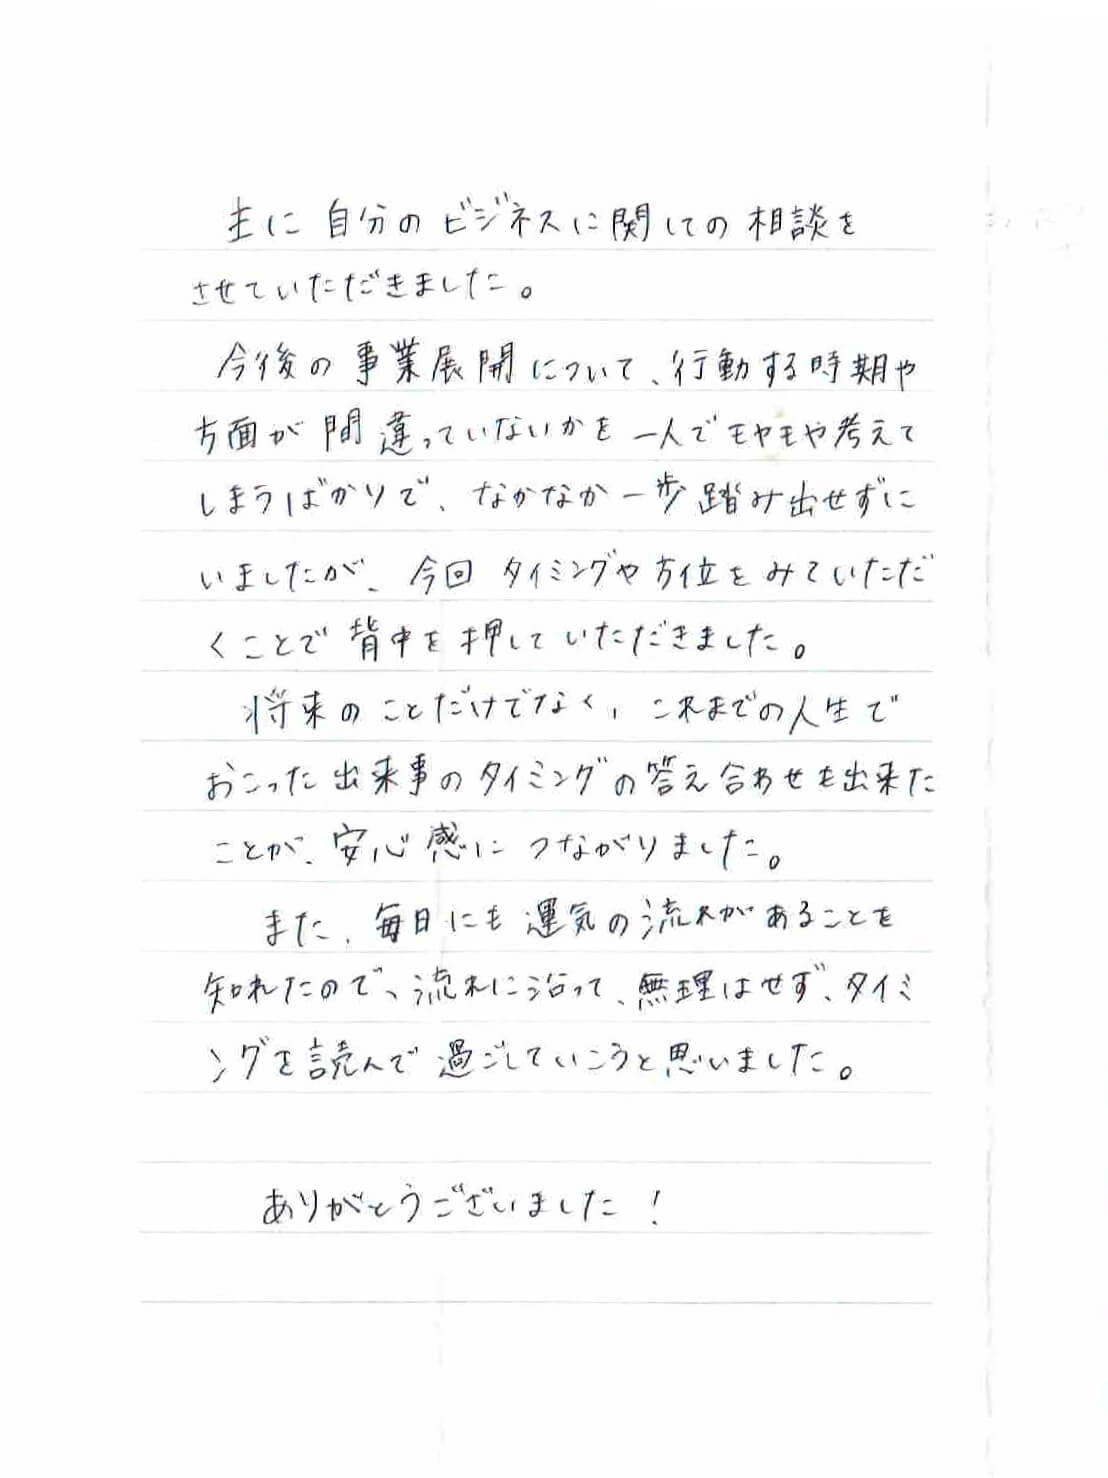 主に自分のビジネスに関しての相談を
させていただきました。
今後の事業展開について、行動する時期や
方面が間違っていないかを一人でモヤモヤ考えて
しまうばかりで、なかなか一歩踏み出せずに
いましたが、今回タイミングや方位をみていただ
くことで背中を押していただきました。
将来のことだけでなく、これまでの人生で
おこった出来事のタイミングの答え合わせも出来た
ことが、安心感につながりました。
また、毎日にも運気の流れがあることを
知れたので、流れに沿って、無理はせず、タイミ
ングを読んで過ごしていこうと思いました。
ありがとうございました!